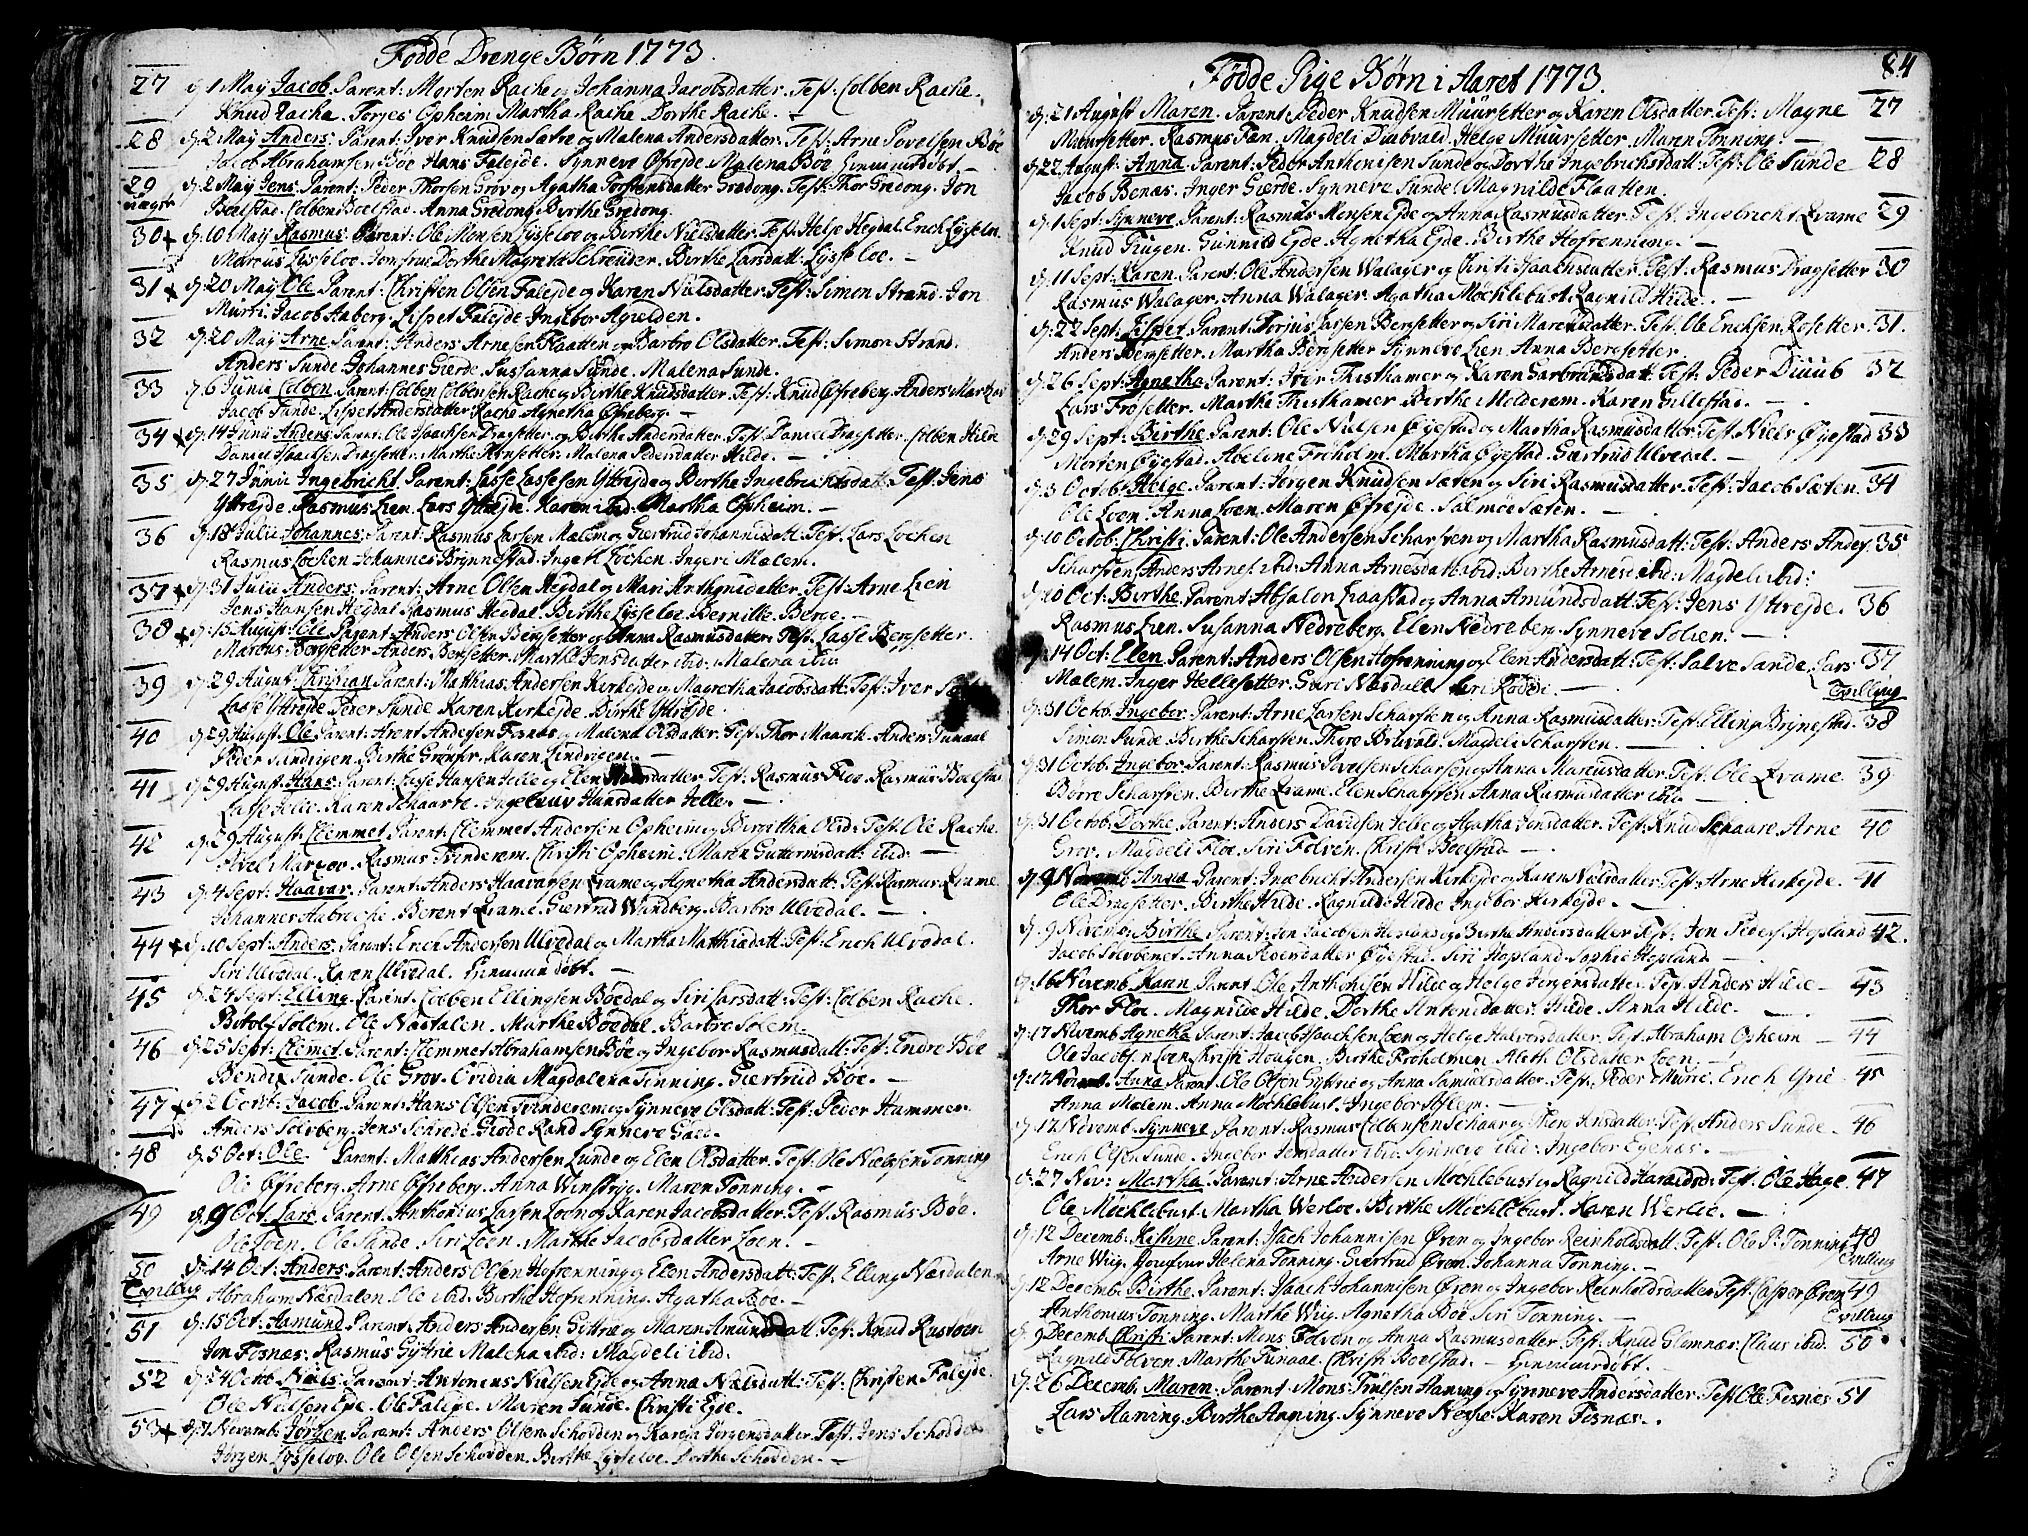 Fødde Drenge Børn 1773.
27 d. 1 Maÿ Jacob. Parent: Morten Rache og Johanna Jacobsdatter. Test: Colben Rache.
Knud Rache. Torjes Opheim. Martha Rache. Dorthe Rache.
28 d. 2 Maÿ Anders. Parent: Iver Knudsen Sætre og Malena Andersdatter. Test: Arne Povelsen Bøe
Jacob Abrahamsen Bøe. Hans Falejde. Synneve Øfrejde. Malena Bøe.
29 d. 2 Maÿ Jens. Parent: Peder Thorsen Grov og Agatha Torstensdatter Grødong. Test: Thor Grødong. Jon
Boelstad. Colben Boelstad. Anna Grødong. Birthe Grødong.
30 d. 10 Maÿ Rasmus. Parent: Ole Monsen Lysseloe og Birthe Nielsdatter. Test: Helje Hegdal. Erich Lysseloe.
Marcus Lysseloe. Jomfrue Dorthe Magreta Schreuder. Birthe Larsdatt: Lysseloe. —
31 d. 20 Maÿ Ole. Parent: Christen Olsen Falejde og Karen Nielsdatter. Test: Simon Strand. Jon
Murri. Jacob Aaberg. Lispet Falejde. Ingebor
32 d. 20 Maÿ Arne. Parent: Anders Arnesen Flaatten og Barbro Olsdatter. Test: Simon Strand.
Anders Sunde. Johannes Gierde. Susanna Sunde. Malena Sunde.
33 d. 6 Junii Colben. Parent: Colben Colbensen Rache og Birthe Knudsdatter. Test: Knud Øfreberg. Anders
Jacob Sunde. Lispet Andersdatter Rache. Agnetha Øfreberg. —
34 d. 14 Junii Anders. Parent: Ole Isaachsen Dragsetter og Birthe Andersdatter. Test: Daniel Dragsetter. Colben Hilde
Daniel Isaachsen Dragsetter. Marthe Monsetter. Malena Pedersdatter Hilde. —
35 d. 27 Junii Ingebricht. Parent: Lasse Lassesen Yttrejde og Birthe Ingebrichtsdatt: Test: Jens
Yttrejde. Rasmus Lien. Lars Yttrejde. Karen ibid. Martha Opheim. —
36 d. 18 Julii Johannes. Parent: Rasmus Larsen Malem og Giertrud Johannisdatt: Test: Lars Løchen
Rasmus Løchen. Johannes Brynnestad. Ingert Løchen. Ingeri Malem.
37 d. 31 Julii Anders. Parent: Arne Olsen Hegdal og Mari Anthonisdatter. Test: Arne Lien
Jens Hansen Hegdal. Rasmus Hegdal. Birthe Lysseloe. Pernille Berge. —
38 d. 15 August: Ole. Parent: Anders Olsen Bergsetter og Anna Rasmusdatter. Test: Lasse Bergsetter.
Marcus Bergsetter. Anders Bergsetter. Marthe Jensdatter ibid: Malena ibid.
39 d. 29 August: Christian. Parent: Matthias Andersen Kirkejde og Magretha Jacobsdatt: Test: Iver
Lasse Yttrejde. Peder Sunde. Karen Kirkejde. Birthe Yttrejde.
40 d. 29 August: Ole. Parent: Arent Andersen Fosnæs og Malena Olsdatter. Test: Thor Maarch. Anders Tunaal
Peder Sandvigen. Birthe Karen Lindvigen. —
41 d. 29 August: Hans. Parent: Lasse Hansen Jelle og Elen datter. Test: Rasmus Floe. Rasmus Boelstad
Lasse Jelle. Karen Schaare. Ingebaar Hansdatter Jelle. —
42 d. 29 August: Clemmet. Parent: Clemmet Andersen Opheim og Birgittha Olsd: Test: Ole Rache.
Rasmus Tvinderem. Christi Opheim. Maren Guttormsdatt: ibid: —
43 d. 4 Sept: Haavar. Parent: Anders Haavarsen Qvame og Agnetha Andersdatt: Test: Rasmus Qvame
Johannes Aabreche. Berent Qvame. Giertrud Wandberg. Barbro Ulvedal. —
44 d. 10 Sept: Anders. Parent: Erich Andersen Ulvedal og Martha Matthisdatt: Test: Erich Ulvedal.
Siri Ulvedal. Karen Ulvedal. døbt. —
45 d. 24 Sept: Elling. Parent: Colben Ellingsen Bøedal og Siri Larsdatt: Test: Colben Rache.
Solem. Ole Næsdalen. Marthe Bøedal. Barbro Solem.
46 d. 25 Sept: Clemet. Parent: Clemmet Abrahamsen Bøe og Ingebor Rasmusdatt: Test: Endre Bøe
Bendix Sunde. Ole Grov. Ovidia Magdalena Tønning. Giertrud Bøe. —
47 d. 2 Octob: Jacob. Parent: Hans Olsen Tvinderem og Synneve Olsdatt: Test: Peder Hammer
Anders Solvberg. Jens Schrede. Giøde Rand. Synneve
48 d. 5 Oct: Ole. Parent: Matthias Andersen Lunde og Elen Olsdatter. Test: Ole Nielsen Tonning
Ole Øfreberg. Arne Øfreberg. Anna Winstryg. Maren Tonning. —
49 d. 9 Oct. Lars. Parent: Anthonius Larsen Loen og Karen Jacobsdatter. Test: Rasmus Bøe.
Ole Loen. Ole Sande. Siri Loen. Marthe Jacobsdatter Loen. —
50 Tvilling d. 14 Oct: Anders. Parent: Anders Olsen Hofrenning og Elen Andersdatt: Test: Elling Næsdalen
Abraham Næsdalen. Ole ibid. Birthe Hofrenning. Agatha Bøe. —
51 d. 15 Oct: Aamund. Parent: Anders Andersen Gyttrie og Maren Amundsdatt: Test: Knud Rustøen
Jon Fosnæs. Rasmus Gyttrie. Malena ibid: Magdeli ibid.
52 d. 24 Octob: Niels. Parent: Antonius Nielsen Ejde og Anna Nielsdatt: Test: Christen Falejde.
Ole Nielsen Ejde. Ole Falejde. Maren Sunde. Christi Ejde.
53 d. 7 Novemb: Jørgen. Parent: Anders Olsen Schodden og Karen Jørgensdatter. Test: Jens Schodden
Jørgen Lysseloe. Ole Olsen Schodden. Birthe Lysseloe. Dorthe Schodden. —
84
Fødde Pige Børn i Aaret 1773.
d. 21 August Maren. Parent: Peder Knudsen Muursetter og Karen Olsdatter. Test: Magne 27
Muursetter. Rasmus Fæn. Magdeli Diubvald. Helge Muursetter. Maren Tonning. —
d. 22 August: Anna. Parent: Peder Anthonisen Sunde og Dorthe Ingebrichtsdatt: Test: Ole Sunde 28
Jacob Benæs. Inger Gierde. Synneve Sunde. Magnilde Flaatten.
d. 1 Sept: Synneve. Parent: Rasmus Monsen Ejde og Anna Rasmusdatter. Test: Ingebricht Qvame 29
Knud Gunnild Ejde. Agnetha Ejde. Birthe Hofrenning. —
d. 11 Sept: Karen. Parent: Ole Andersen Walager og Christi Isaachsdatter. Test: Rasmus Dragsetter 30
Rasmus Walager. Anna Walager. Agatha Møchlebust. Ragnild Hilde. —
d. 22 Sept: Lispet. Parent: Torjus Larsen Bergsetter og Siri Marensdatter. Test: Ole Erichsen Rosetter. 31.
Anders Bergsetter. Martha Bergsetter. Synneve Lien. Anna Bergsetter.
d. 26 Sept: Agnetha. Parent: Iver Thisthamer og Karen Garbrandsdatt: Test: Peder Diuub 32
Lars Frøsetter. Marthe Thisthamer. Birthe Melderem. Karen Gillestad. —
d. 29 Sept: Birthe. Parent: Ole Nielsen Øyestad og Martha Rasmusdatter. Test: Niels Øyestad 33
Morten Øyestad. Abelene Froholm. Martha Øyestad. Giertrud Ulvedal. —
d. 3 Octob: Helge. Parent: Jørgen Knudsen Sæten og Siri Rasmusdatter. Test: Jacob Sæten 34
Ole Loen. Anna Loen. Maren Øfrejde. Salmøe Sæten. —
d. 10 Octob. Christi. Parent: Ole Andersen Scharsten og Martha Rasmusdatt: Test: Anders Anders: 35
Scharsten. Anders Arnes: ibid: Anna Arnesdatt: ibid: Birthe Arnesd. ibid: Magdeli ibid:
d. 10 Oct: Birthe. Parent: Absalon Qvaastad og Anna Amundsdatt: Test: Jens Yttrejde. 36
Rasmus Lien. Susanna Nedreberg. Elen Nedreberg. Synneve Solem. —
d. 14 Oct: Elen. Parent: Anders Olsen Hofrenning og Elen Andersdatt: Test: Salve Sande. Lars 37
Malem. Inger Hellesetter. Guri Næsdall. Siri Rødde. — Tvilling
d. 31 Octob. Ingebor. Parent: Arne Larsen Scharsten og Anna Rasmusdatter. Test: Elling Brynestad. 38
Simon Sunde. Birthe Scharsten. Thore Brivold. Magdeli Scharsten. —
d. 31 Octob. Ingebor. Parent: Rasmus Povelsen Scharsten og Anna Marcusdatter. Test: Ole Qvame. 39
Børre Scharsten. Birthe Qvame. Elen Scharsten. Anna Rasmusdatter ibid. —
d. 31 Octob. Dorthe. Parent: Anders Davidsen Jelle og Agatha Jonsdatter. Test: Knud Schaare. Arne 40
Grov. Magdeli Floe. Siri Folven. Christi Boelstad. —
d. 9 Novemb Anna. Parent: Ingebricht Andersen Kirkejde og Karen Nielsdatter. Test: Arne Kirkejde. 41
Ole Dragsetter. Birthe Hilde. Ragnild Hilde. Ingebor Kirkejde. —
d. 9 Novemb: Birthe. Parent: Jon Jacobsen Hopland og Birthe Andersdatter. Test: Jon Peders: Hopland 42.
Jacob Solvbernet. Anna Pedersdatter Øyestad. Siri Hopland. Sophie Hopland. —
d. 16 Novemb. Karen. Parent: Ole Anthonisen Hilde og Helge Jørgensdatter. Test: Anders Hilde — 43
Thor Floe. Magnilde Hilde. Dorthe Antonisdatter Hilde. Anna Hilde. —
d. 17 Novemb Agnetha. Parent: Jacob Isaachsen Loen og Helge Halvorsdatter. Test: Abraham Opheim — 44
Ole Jacobsen Loen. Christi Hougen. Birthe Froholmen. Aleth Olsdatter Loen. —
d. 17 Novemb. Anna. Parent: Ole Olsen Gyttrie og Anna Samuelsdatter. Test: Peder Muri. Erich Yrie. 45
Anna Malem. Anna Mochlebust. Ingebor —
d. 17 Novemb. Synneve. Parent: Rasmus Colbensen Schaar og Thore Jensdatter. Test: Anders Sunde. 46
Erich Olsen Sunde. Ingebor Jensdatter ibid. Synneve ibid: Ingebor Egenæs.
d. 27 Nov: Martha. Parent: Arne Andersen Mochlebust og Ragnild Haraldsd: Test: Ole Hage. 47
Ole Mochlebust. Martha Werloe. Birthe Mochlebust. Karen Werloe. —
d. 12 Decemb. Kistine. Parent: Isach Johannisen Øren og Ingebor Reinholdsdatt: Test: Ole P. Tonning 48
Arne Wiig. Jomfrue Helena Tonning. Giertrud Øren. Johanna Tonning. — Tvilling
d. 12 Decemb. Birthe. Parent: Isaach Johannisen Øren og Ingebor Reinholdsdatter. Test: Casper Øren 49
Anthonius Tonning. Marthe Wiig. Agnetha Bøe. Siri Tonning. — Tvilling
d. 9 Decemb. Christi. Parent: Mons Folven og Anna Rasmusdatter. Test: Knud Glomnæs. Claus ibid. 50
Ragnild Folven. Marthe Tunaal. Christi Boelstad. — døbt. —
d. 26 Decemb. Maren. Parent: Mons Truelsen Haning og Synneve Andersdatter. Test: Ole Fosnæs 51
Lars Aaning. Birthe Anning. Synneve Nesse. Karen Fosnæs.